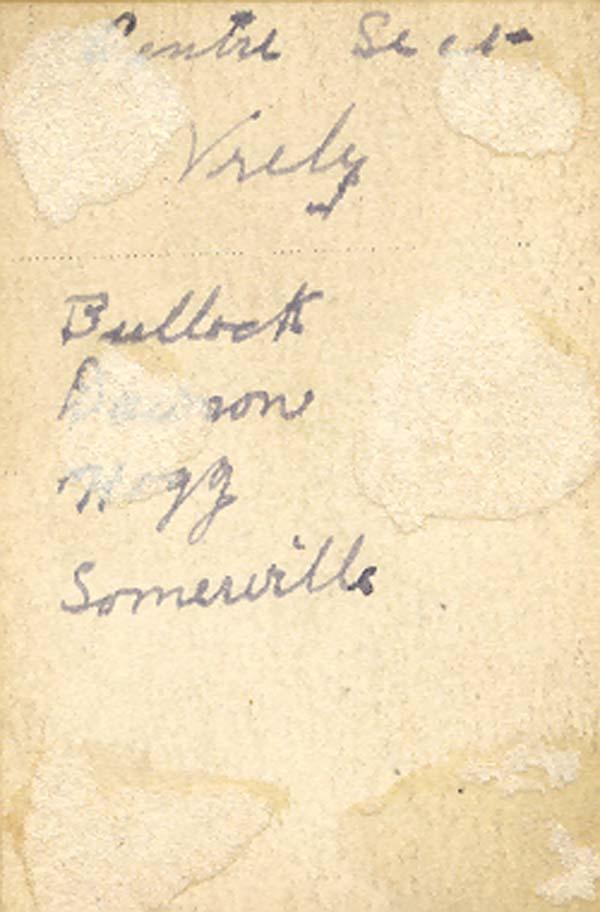 Centre Sect
Vrely
Bullock
Dawson
Hogg
Somerville